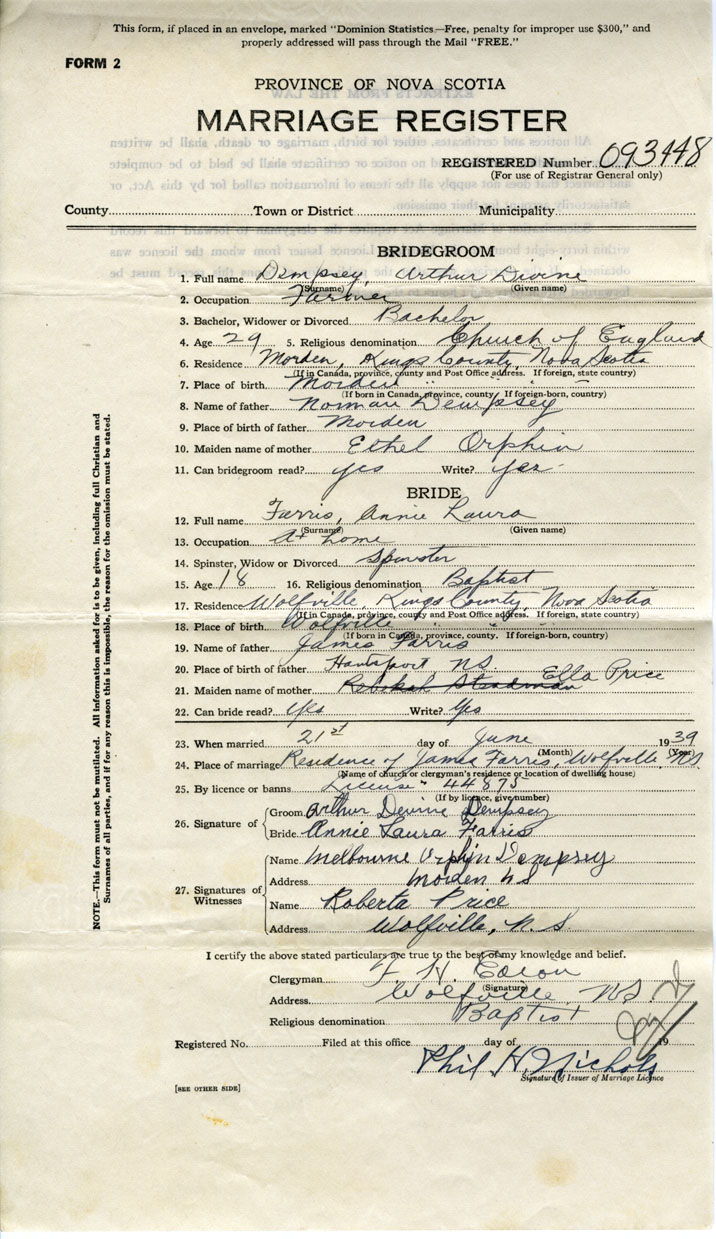 This form, if placed in an envelope, marked "Dominion Statistics—Free, penalty for improper use $300," and
properly addressed will pass through the Mail "FREE."
FORM 2
PROVINCE OF NOVA SCOTIA
MARRIAGE REGISTER
REGISTERED Number 093448
(For use of Registrar General only)
County Town or District Municipality
BRIDEGROOM
1. Full name Dempsey, Arthur Devine
(Surname) (Given name)
2. Occupation Farmer
3. Bachelor, Widower or Divorced Bachelor
4. Age 29 5. Religious denomination Church of England
6. Residence Morden, Kings County, Nova Scotia
(If in Canada, province, county and Post Office address. If foreign, state country)
7. Place of birth Morden " " " "
(If born in Canada, province, county. If foreign-born, country)
8. Name of father Norman Dempsey
9. Place of birth of father Morden
10. Maiden name of mother Ethel Orphin
11. Can bridegroom read? yes Write? yes
BRIDE
12. Full name Farris, Annie Laura
(Surname) (Given name)
13. Occupation At home
14. Spinster, Widow or Divorced Spinster
15. Age 18 16. Religious denomination Baptist
17. Residence Wolfville, Kings County, Nova Scotia
(If in Canada, province, county and Post Office address. If foreign, state country)
18. Place of birth Wolfville " " " "
(If born in Canada, province, county. If foreign-born, country)
19. Name of father James Farris
20. Place of birth of father Hantsport N.S.
21. Maiden name of mother Rebekah Steadman Ella Price
22. Can bride read? Yes Write? Yes
23. When married 21st day of June 1939
(Month) (Year)
24. Place of marriage Residence of James Farris, Wolfville, N.S.
(Name of church or clergyman's residence or location of dwelling house)
25. By licence or banns License - 44875
(If by licence, give number)
26. Signature of Groom Arthur Devine Dempsey
Bride Annie Laura Farris
27. Signatures of Witnesses
Name Melbourne Orphin Dempsey
Address Morden NS
Name Roberta Price
Address Wolfville, N.S.
I certify the above stated particulars are true to the best of my knowledge and belief.
Clergyman F. H. Eaton
(Signature)
Address Wolfville NS
Religious denomination Baptist
Registered No. Filed at this office day of 19
Phil H. Nichols
Signature of Issuer of Marriage Licence
[SEE OTHER SIDE]
NOTE.—This form must not be mutilated. All information asked for is to be given, including full Christian and
Surnames of all parties, and if for any reason this is impossible, the reason for the omission must be stated.